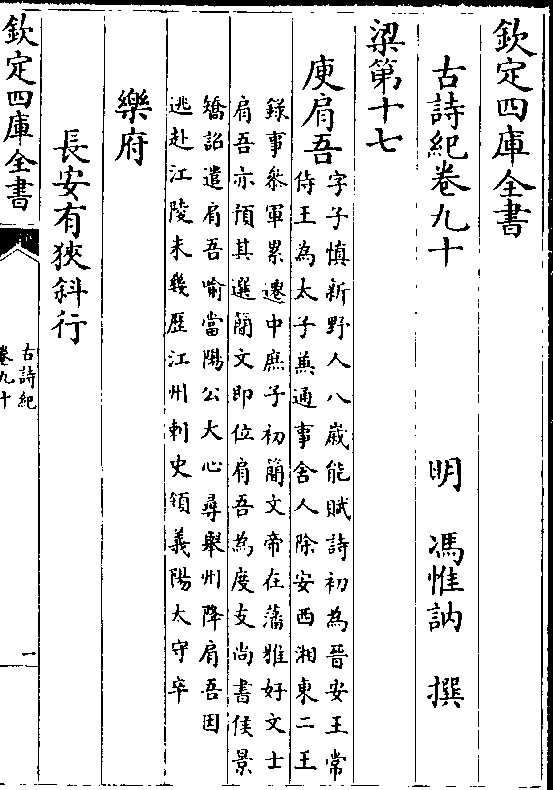 欽定四庫全書
古詩紀卷九十
明 馮惟訥 撰
梁第十七
庾肩吾
字子慎新野人八歲能賦詩初為晉安王常
侍王為太子兼通事舍人除安西湘東二王
錄事叅軍累遷中庶子初簡文帝在藩雅好文士
肩吾亦預其選簡文即位肩吾為度支尚書侯景
矯詔遣肩吾喻當陽公大心尋舉州降肩吾因
逃赴江陵未幾歴江州刺史領義陽太守卒
樂府
長安有狹斜行
欽定四庫全書
古詩紀
卷九十
一